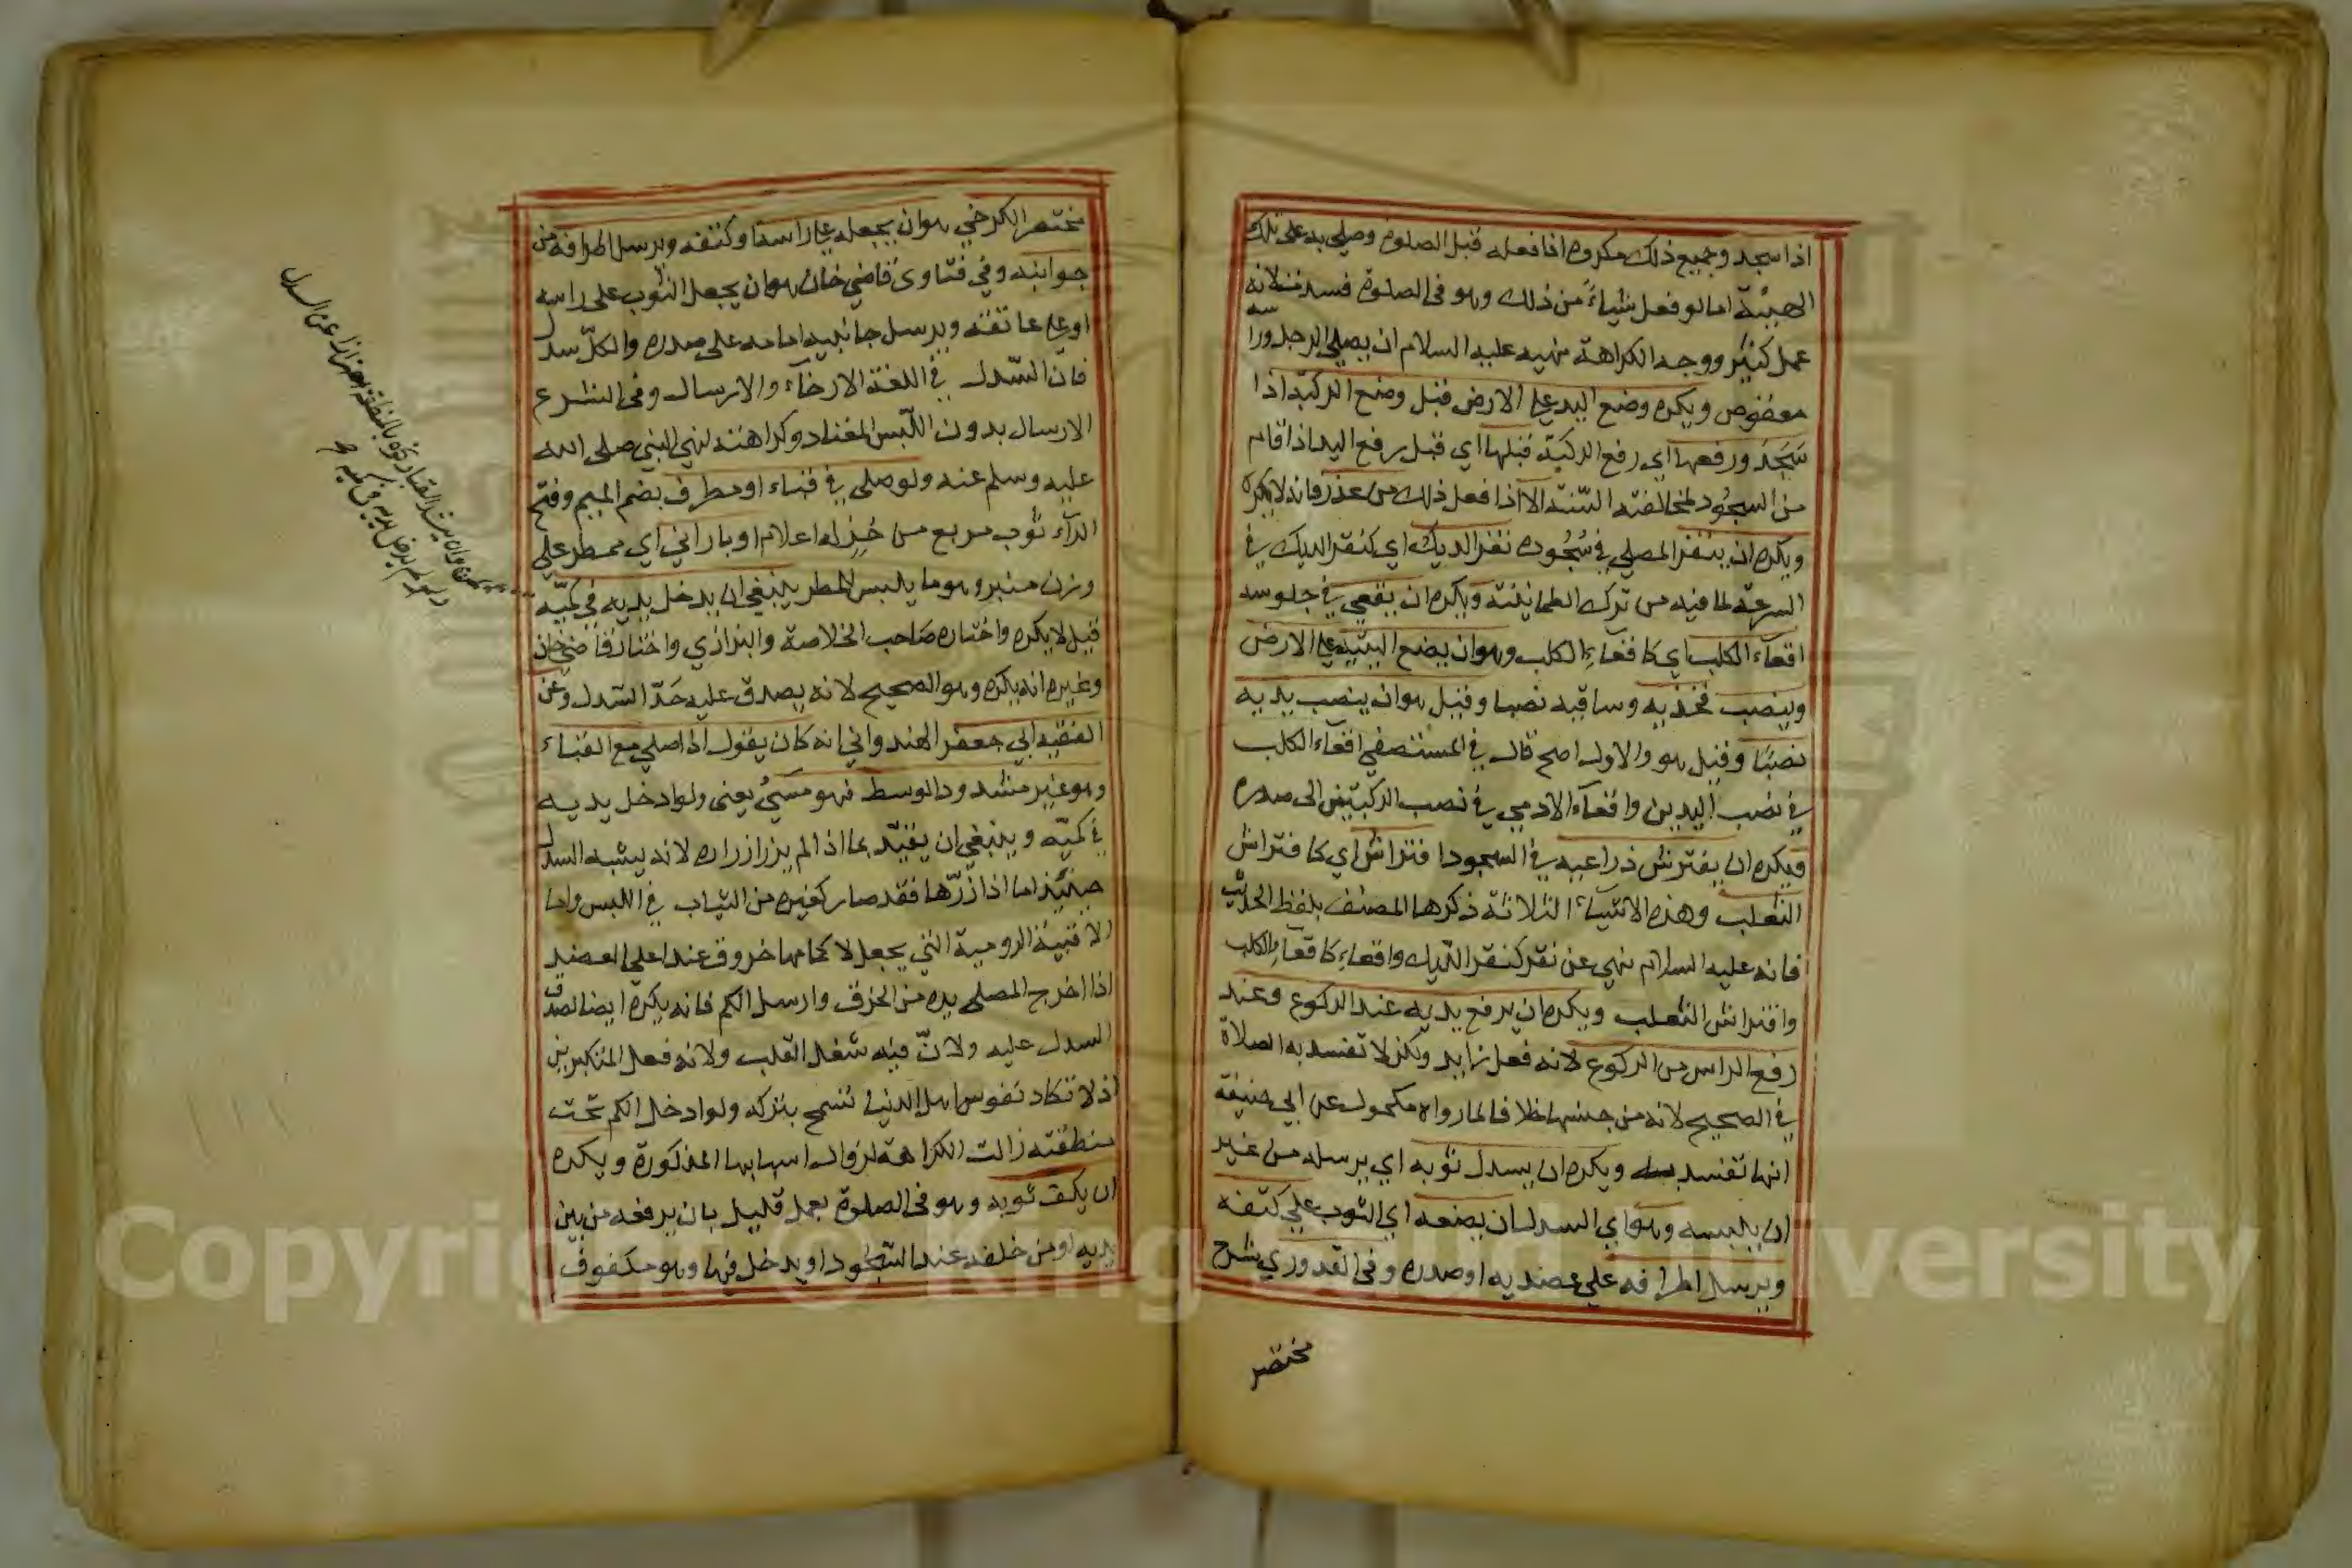 اذا سجد وجميع ذلك مكروه اذا فعله قبل الصلوة وصلي به على تلك
الهيئة اما لو فعل شياء من ذلك وهو في الصلوة فسدت لانه
عمل كثير ووجه الكراهة نهيه عليه السلام ان يصلي الرجل وراسه
معقوص ويكره وضع اليد علي الارض قبل وضع الركبة اذا
سجد ورفعها اي رفع الركبة قبلها اي قبل رفع اليد اذا قام
من السجود لمخالفته السنة الا اذا فعل ذلك من عذر فانه لا يكره
ويكره ان ينقر المصلي في سجوده نقر الديك اي كنقر الديك في
السرعة لما فيه من ترك الطمانينة ويكره ان يقعي في جلوسه
اقعاء الكلب اي كاقعاء الكلب وهو ان يضع اليتيه علي الارض
وينصب فخذيه وساقيه نصبا وقيل هو ان ينصب يديه
نصبا وقيل هو والاول اصح قال في المستصفي اقعاء الكلب
في نصب اليدين واقعاء الادمي في نصب الركبتين الى صدره
ويكره ان يفترش ذراعيه في السجود افتراش اي كافتراش
الثعلب وهذه الاشياء الثلاثة ذكرها المصنف بلفظ الحديث
فانه عليه السلام نهي عن نقر كنقر الديك واقعاء كاقعاء الكلب
وافتراش الثعلب ويكره ان يرفع يديه عند الركوع وعند
رفع الراس من الركوع لانه فعل زايد ولكن لا تفسد به الصلاة
في الصحيح لانه من جنسها خلافا لما رواه مكحول عن ابي حنيفة
انها تفسد به ويكره ان يسدل ثوبه اي يرسله من غير
ان يلبسه وهو اي السدل ان يضعه اي الثوب علي كتفه
ويرسل اطرافه علي عضديه او صدره وفي القدوري شرح
مختصر
مختصر الكرخي هو ان يجعله علي راسه او كتفه ويرسل اطرافه من
جوانبه وفي فتاوى قاضي خان هو ان يجعل الثوب على راسه
او علي عاتقه ويرسل جانبيه امامه على صدره والكل سدل
فان السدل في اللغة الارخاء والارسال وفي الشرع
الارسال بدون اللبس المعتاد وكراهته لنهي النبي صلى الله
عليه وسلم عنه ولو صلى في قباء او مطرف بضم الميم وفتح
الراء ثوب مربع من خز له اعلام او باراني اي ممطر علي
وزن منبر وهو ما يلبس للمطر ينبغي ان يدخل يديه في كميه
قيل لا يكره واختاره صاحب الخلاصة والبزازي واختار قاضي خان
وغيره انه يكره وهو الصحيح لانه يصدق عليه حد السدل وعن
الفقيه ابي جعفر الهندواني انه كان يقول اذا صلي مع القباء
وهو غير مشدود الوسط فهو مسيء يعني ولو ادخل يديه
في كميه وينبغي ان يقيد بما اذا لم يزر ازراره لانه يشبه السدل
حينئذ اما اذا زرها فقد صار كغيره من الثياب في اللبس واما
الاقبية الرومية التي يجعل لاكمامها خروق عند اعلي العضد
اذا اخرج المصلي يده من الخرق وارسل الكم فانه يكره ايضا لصدق
السدل عليه ولان فيه شغل القلب ولانه فعل المتكبرين
اذ لا تكاد نفوس اهل الدنيا تسمح بتركه ولو ادخل الكم تحت
منطقته زالت الكراهة لزوال اسبابها المذكورة ويكره
ان يكف ثوبه وهو في الصلوة بعمل قليل بان يرفعه من بين
يديه او من خلفه عند السجود او يدخل فيها وهو مكفوف
Copyright © King Saud University